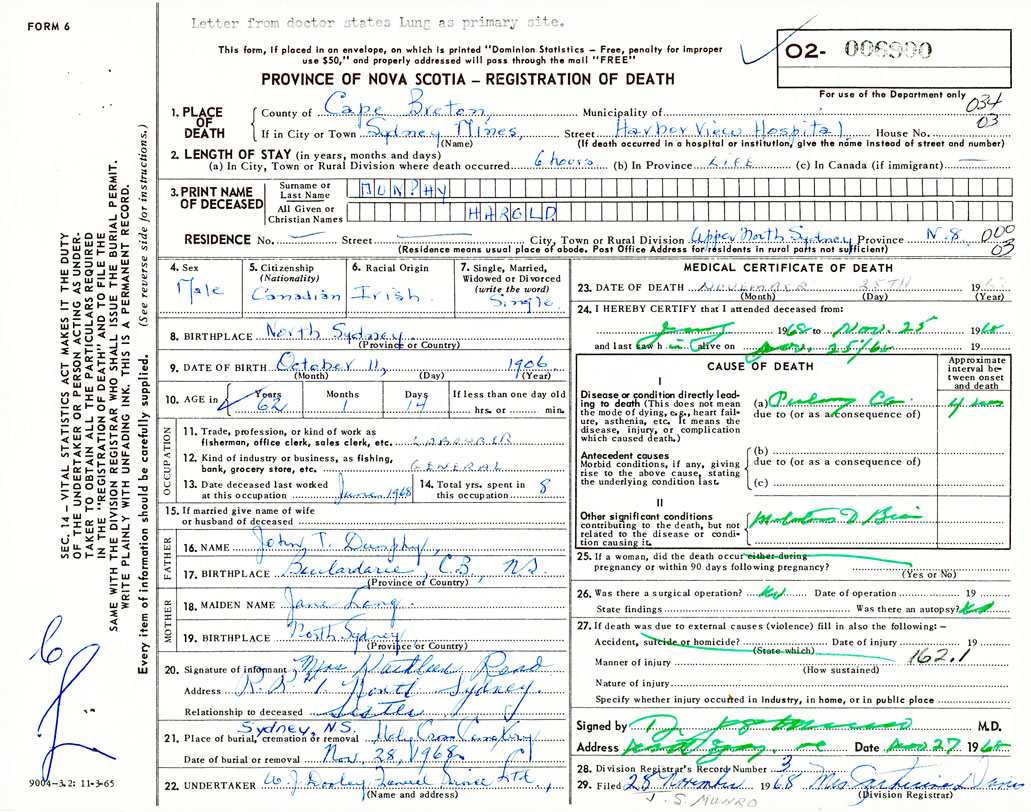 FORM 6
Letter from doctor states Lung as primary site.
This form, if placed in an envelope, on which is printed "Dominion Statistics – Free, penalty for improper
use $50," and properly addressed will pass through the mail "FREE"
PROVINCE OF NOVA SCOTIA – REGISTRATION OF DEATH
02- 006900
For use of the Department only
034
03
1. PLACE OF DEATH
County of Cape Breton, Municipality of
If in City or Town Sydney Mines, Street Harbor View Hospital House No.
(Name) (If death occurred in a hospital or institution, give the name instead of street and number)
2. LENGTH OF STAY (in years, months and days)
(a) In City, Town or Rural Division where death occurred 6 hours (b) In Province LIFE (c) In Canada (if immigrant) —
3. PRINT NAME OF DECEASED
Surname or Last Name DUN?HY
All Given or Christian Names HAROLD
RESIDENCE No. — Street — City, Town or Rural Division Upper North Sydney Province N.S. 000
03
(Residence means usual place of abode. Post Office Address for residents in rural parts not sufficient)
4. Sex Male
5. Citizenship (Nationality) Canadian
6. Racial Origin Irish
7. Single, Married, Widowed or Divorced (write the word) Single
8. BIRTHPLACE North Sydney
(Province or Country)
9. DATE OF BIRTH October 11, 1906
(Month) (Day) (Year)
10. AGE in Years Months Days If less than one day old
62 1 14 hrs. or min.
OCCUPATION
11. Trade, profession, or kind of work as
fisherman, office clerk, sales clerk, etc. LABOURER
12. Kind of industry or business, as fishing,
bank, grocery store, etc. GENERAL
13. Date deceased last worked
at this occupation June 1968
14. Total yrs. spent in
this occupation 8
15. If married give name of wife
or husband of deceased
FATHER
16. NAME John T. Dunphy,
17. BIRTHPLACE Boulardarie, C.B., N.S.
(Province or Country)
MOTHER
18. MAIDEN NAME Jane Lang.
19. BIRTHPLACE North Sydney
(Province or Country)
20. Signature of informant Mrs Kathleen Read
Address R.R. 1. North Sydney.
Relationship to deceased Sister
Sydney, N.S.
21. Place of burial, cremation or removal Holy Cross Cemetery
Date of burial or removal Nov, 28, 1968
22. UNDERTAKER W. J. Dooley Funeral Service Ltd.,
(Name and address)
MEDICAL CERTIFICATE OF DEATH
23. DATE OF DEATH NOVEMBER 25TH 19
(Month) (Day) (Year)
24. I HEREBY CERTIFY that I attended deceased from:
1968 to Nov. 25 1968
and last saw h im alive on Nov. 25/68
CAUSE OF DEATH
Approximate interval between onset and death
I
Disease or condition directly leading to death (This does not mean the mode of dying, e.g., heart failure, asthenia, etc. It means the disease, injury, or complication which caused death.)
(a) Pulmony Ca.
due to (or as a consequence of)
Antecedent causes
Morbid conditions, if any, giving rise to the above cause, stating the underlying condition last.
(b)
due to (or as a consequence of)
(c)
II
Other significant conditions
contributing to the death, but not related to the disease or condition causing it.
25. If a woman, did the death occur either during
pregnancy or within 90 days following pregnancy?
(Yes or No)
26. Was there a surgical operation? No Date of operation 19
State findings Was there an autopsy? No
27. If death was due to external causes (violence) fill in also the following: –
Accident, suicide or homicide? Date of injury 19
(State which)
162.1
Manner of injury
(How sustained)
Nature of injury
Specify whether injury occurred in Industry, in home, or in public place
Signed by M.D.
Address Date Nov 27 1968
28. Division Registrar's Record Number 3
29. Filed 28 November 1968 Mrs Catherine Davis
(Division Registrar)
J. S. MUNRO
SEC. 14 – VITAL STATISTICS ACT MAKES IT THE DUTY
OF THE UNDERTAKER OR PERSON ACTING AS UNDER-
TAKER TO OBTAIN ALL THE PARTICULARS REQUIRED
IN THE "REGISTRATION OF DEATH" AND TO FILE THE
SAME WITH THE DIVISION REGISTRAR WHO SHALL ISSUE THE BURIAL PERMIT.
WRITE PLAINLY WITH UNFADING INK. THIS IS A PERMANENT RECORD.
Every item of information should be carefully supplied. (See reverse side for instructions.)
9004–3.2: 11-3-65